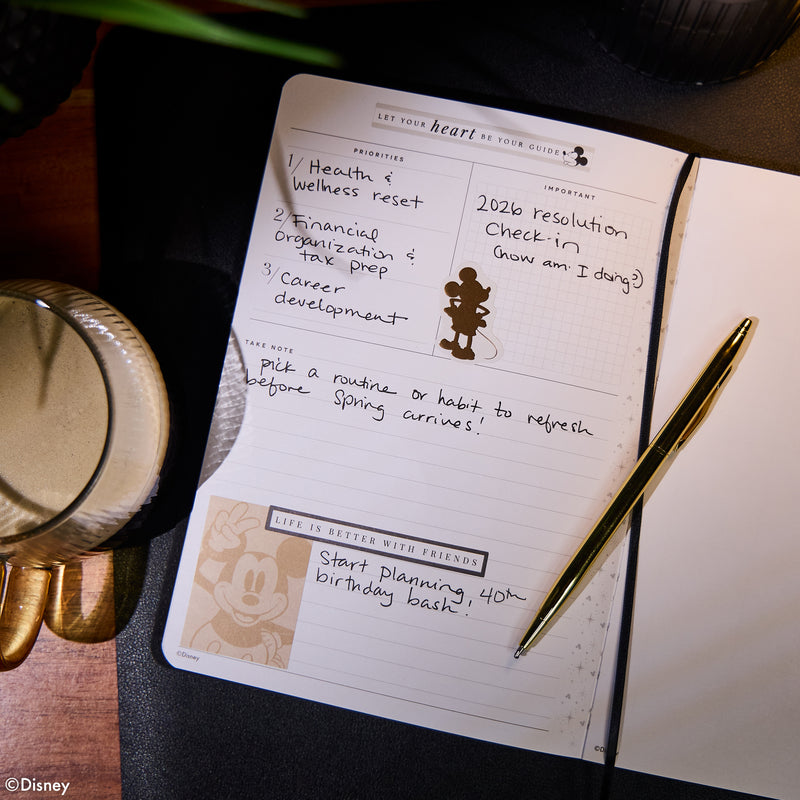 LET YOUR heart BE YOUR GUIDE
PRIORITIES
1/ Health &
Wellness reset
2/ Financial
organization &
tax prep
3/ Career
development
IMPORTANT
2026 resolution
Check-in
(how am I doing?)
TAKE NOTE
pick a routine or habit to refresh
before Spring arrives!
LIFE IS BETTER WITH FRIENDS
Start Planning 40th
birthday bash!
©Disney
©Disney